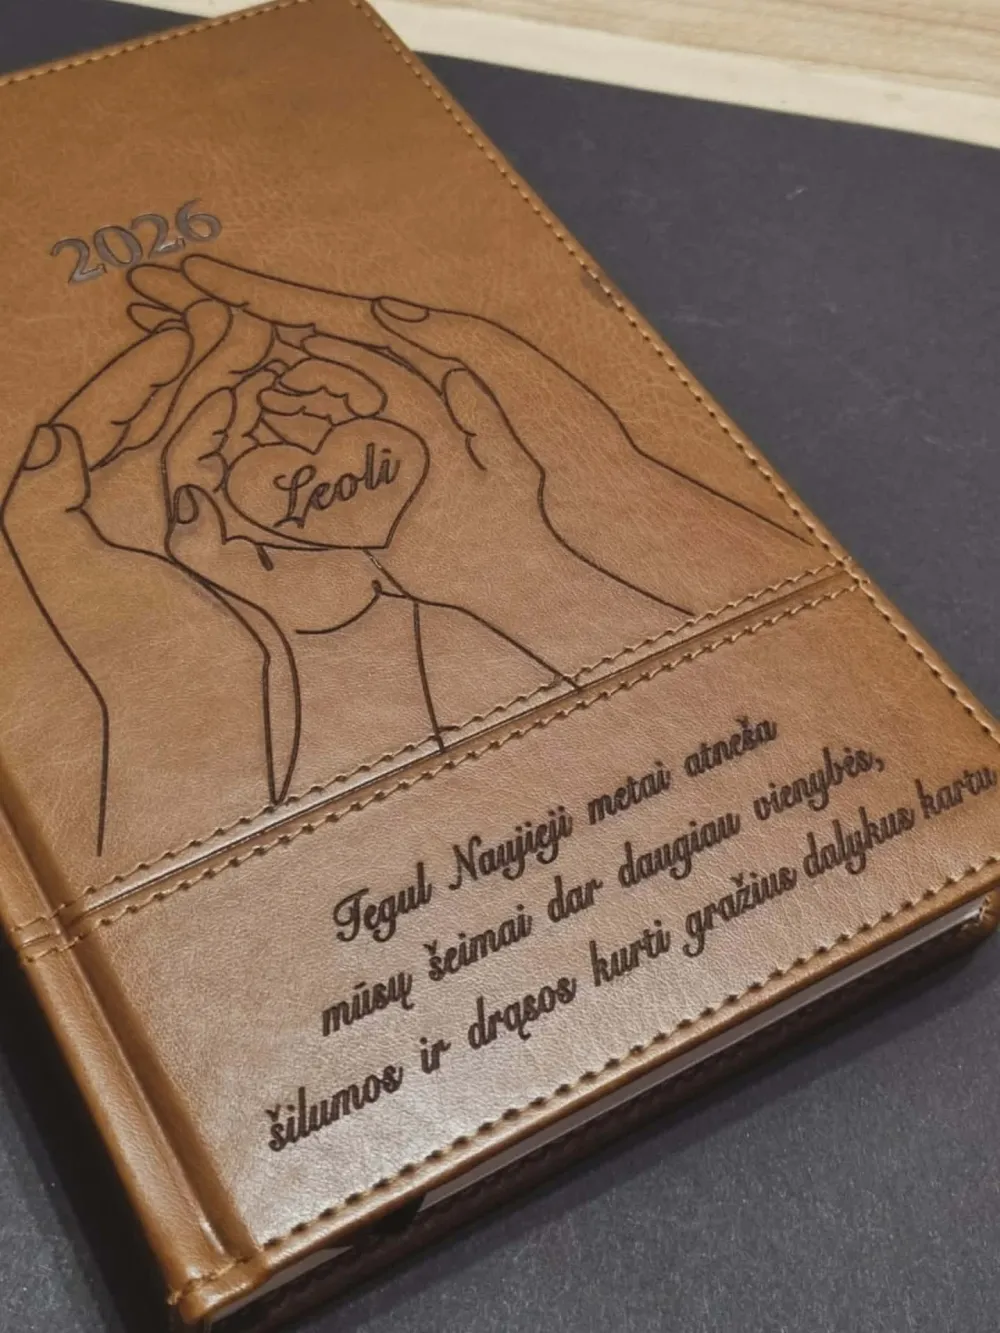 2026
Leoli
Tegul Naujieji metai atneša
mūsų šeimai dar daugiau vienybės,
šilumos ir drąsos kurti gražius dalykus kartu